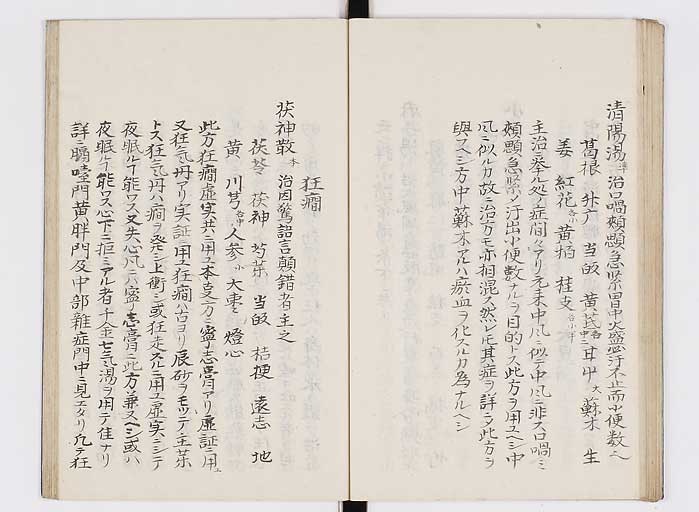 清陽湯 治口喎頬顋急緊胃中火盛汗不止而小便数
葛根 升广 当皈 黄芪 甘屮 蘇木 生
姜 紅花 黄栢 桂支
主治ニ挙ル処ノ症間々アリ元来中風ニ似テ中風ニ非ス口喎ミ
頬顋急緊シ汗出小便数ナルヲ目的トス此方ヲ用ユヘシ中
風ニ似ルカ故ニ治方モ亦相混ス然レ𪜈其症ヲ詳ニシ此方ヲ
與スヘシ方中蘇木アルハ瘀血ヲ化スルカ為ナルヘシ
狂癇
茯神散 治因驚譫言顛錯者主之
茯苓 茯神 芍薬 当皈 桔梗 遠志 地
黄 川芎 人参 大棗 燈心
此方狂癇虚実共ニ用ユ本支方ニ寧志膏アリ虚証ニ用ユ
又狂気丹アリ実証ニ用ユ狂癇ハ古ヨリ辰砂ヲモッテ主薬
トス狂気丹ハ癇ヲ発シ上衝シ或狂走スルニ用ユ虚実ニシテ
夜眠ルヿ能ワス又失心風ニハ寧志膏ニ此方ヲ兼スヘシ或ハ
夜眠ルヿ能ワス心下ニ痞ミアル者千金七気湯ヲ用テ佳ナリ
詳ニ膈噎門黄胖門及中部雑症門中ニ見エタリ凡テ狂